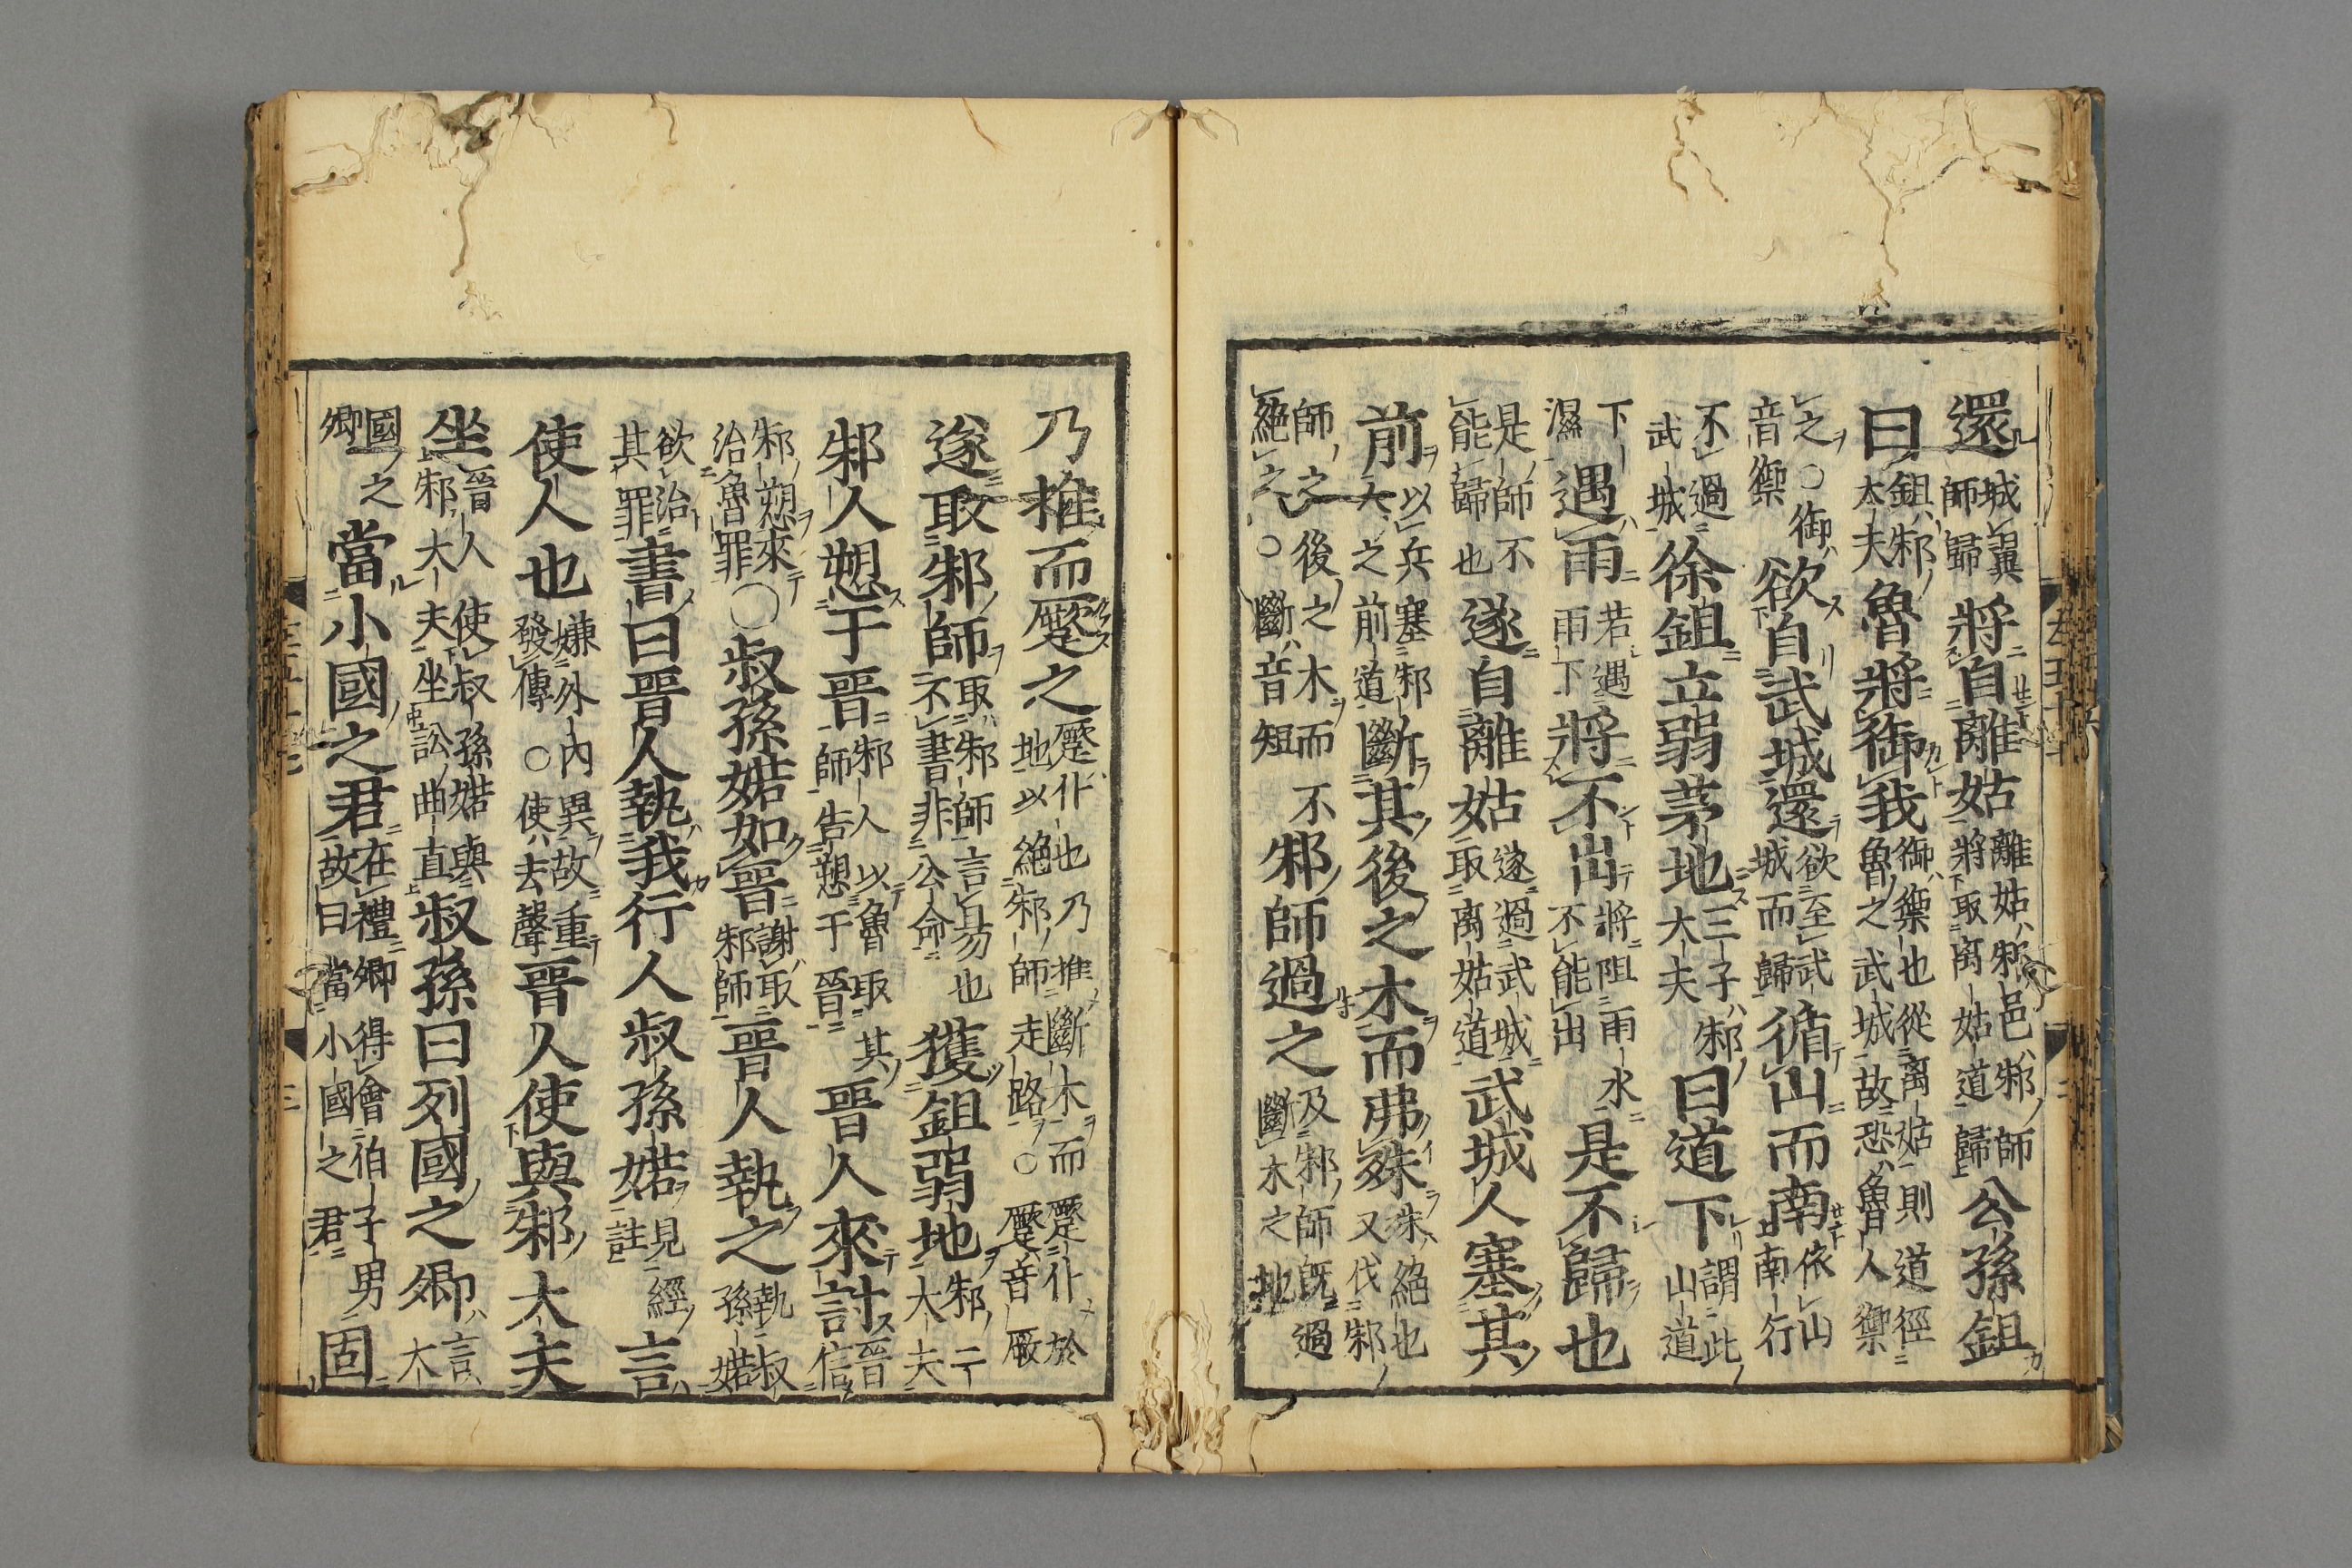 還城翼師歸將自離姑離姑邾邑邾師將取离姑道歸公孫鉏
曰鉏邾大夫魯將御我御禦也從離姑則道徑魯之武城故恐魯人禦
之○御音禦欲自武城還欲至武城而歸循山而南依山南行
不過武城徐鉏立弱茅地三子邾大夫曰道下謂此山道
下濕遇雨若遇雨下將不出將阻雨水不能出是不歸也
是師不能歸也遂自離姑遂過武城取离姑道武城人塞其
前以兵塞邾人之前道斷其後之木而弗殊洙絕也又伐邾
師之後之木而不絕之○斷音短邾師過之及邾師既過斷木之地
乃推而蹷之蹷仆也乃推斷木而蹷仆於地以絕邾師走路○蹷音厥
遂取邾師取邾師言易也不書非公命獲鉏弱地邾三大夫
邾人愬于晉邾人以魯取其師告愬于晉晉人來討晉信
邾愬來治魯罪○叔孫婼如晉謝取邾師晉人執之執叔孫婼
欲治其罪書曰晉人執我行人叔孫婼見經註言
使人也嫌外內異故重發傳○使去聲晉人使與邾大夫
坐晉人使叔孫婼與邾大夫坐訟曲直叔孫曰列國之卿言大
國之卿當小國之君在禮卿得會伯子男故曰當小國之君固